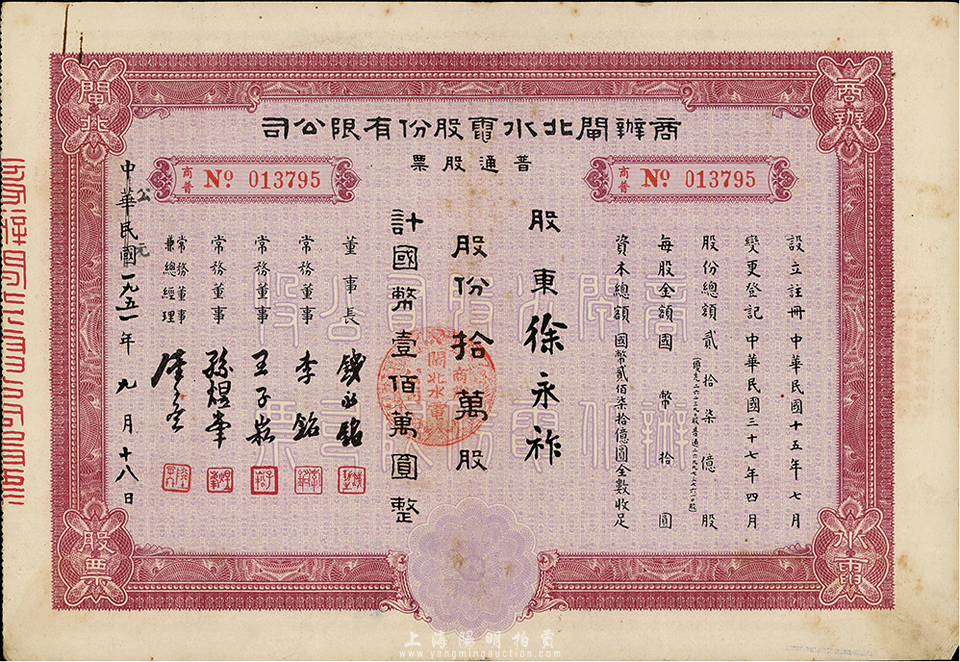 商辦閘北水電股份有限公司
普通股票
商普 No 013795
商普 No 013795
商辦
閘北
水電
股票
設立註冊 中華民國十五年七月
變更登記 中華民國三十七年四月
股份總額 貳拾柒億股
每股金額 國幣拾圓
資本總額 國幣貳佰柒拾億圓全數收足
股東 徐永祚
股份 拾萬股
計國幣壹佰萬圓整
董事長
常務董事 李銘
常務董事 王子崧
常務董事 孫煜峯
常務董事兼總經理
中華民國
公元
一九五一年 九月十八日
上海陽明拍賣
www.yangmingauction.com